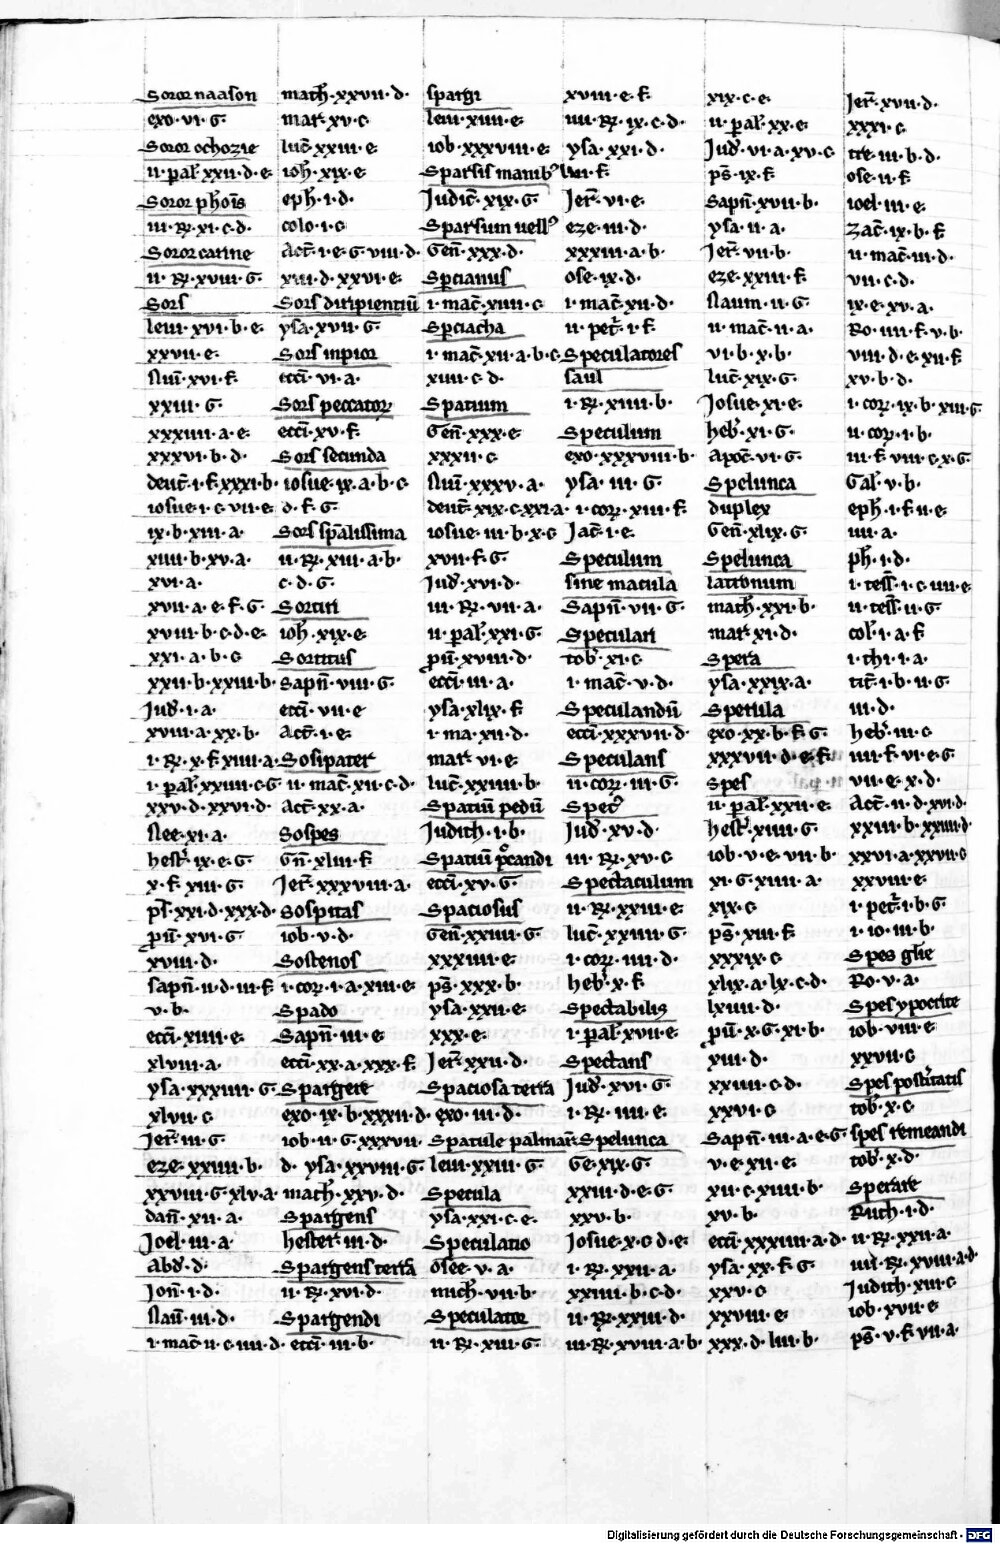 Soror naason
exo · vi · G ·
Soror ochozie
ii · pal · xxii · d · e ·
Soror phois
iii · R · xi · c · d ·
Soror carine
ii · R · xviii · G ·
Sors
leui · xvi · b · e ·
xxvii · e ·
Nui · xvi · f ·
xxiii · G ·
xxxiiii · a · e ·
xxxvi · b · d ·
deut · i · f · xxxi · b ·
iosue · i · c · vii · e ·
ix · b · xiii · a ·
xiiii · b · xv · a ·
xvi · a ·
xvii · a · e · f · G ·
xviii · b · c · d · e ·
xxi · a · b · c
xxii · b · xxiii · b ·
Iud · i · a ·
xviii · a · xx · b ·
i · R · x · f · xiiii · a ·
i · pal · xxiiii · c · G
xxv · d · xxvi · d ·
Nee · xi · a ·
hest · ix · e · G ·
x · f · xiii · G ·
ps · xxi · d · xxx · d ·
pu · xvi · G ·
xviii · d ·
sapn · ii · d · iii · f
v · b ·
ecci · xiiii · e ·
xlviii · a ·
ysa · xxxiiii · G ·
xlvii · c ·
Ier · iii · G ·
eze · xxiiii · b ·
xxviii · G · xlv · a ·
dan · xii · a ·
Joel · iii · a ·
Abd · d ·
Jon · i · d ·
Nau · iii · d ·
i · mac · ii · c · iiii · d ·
math · xxvii · d ·
mar · xv · c ·
luc · xxiii · e
ioh · xix · e
eph · i · d ·
colo · i · c
Act · i · e · G · viii · d ·
xiii · d · xxvi · e ·
Sors diripientiu
ysa · xvii · G ·
Sors inpior
ecci · vi · a ·
Sors peccator
ecci · xv · f ·
Sors secunda
iosue · ix · a · b · c
d · f · G ·
Sors spalissima
ii · R · xiii · a · b ·
c · d · G ·
Sortiri
ioh · xix · e
Sortitus
Sapn · viii · G ·
ecci · vii · e
Act · i · e ·
Sosipater
ii · mac · xii · c · d ·
Act · xx · a ·
Sospes
Gn · xliii · f
Ier · xxxviii · a ·
Sospitas
iob · v · d ·
Sostenes
i · cor · i · a · xiii · e
Spado
Sapn · iii · e
ecci · xx · a · xxx · f
Spargere
exo · ix · b · xxxii · d ·
iob · ii · G · xxxvii ·
d · ysa · xxviii · G ·
math · xxv · d ·
Spargens
hester · iii · d ·
Spargens terra
ii · R · xvi · d ·
Spargendi
ecci · iii · b ·
spargi
leui · xiiii · e
iob · xxxviii · e
Sparsis manib
Judic · xix · G ·
Sparsum uell
Gen · xxx · d ·
Spcianus
i · mac · xiiii · c
Spciacha
i · mac · xii · a · b · c
xiiii · c · d ·
Spatium
Gen · xxx · e
xxxii · c
Nui · xxxv · a ·
deut · xix · c · xxi · a ·
iosue · iii · b · x · c
xvii · f · G ·
Iud · xvi · d ·
iii · R · vii · a ·
ii · pal · xxi · G ·
pu · xviii · d ·
ecci · iii · a ·
ysa · xlix · f
i · ma · xii · d ·
mar · vi · e ·
luc · xxiiii · b ·
Spatiu pedu
Judith · i · b ·
Spatiu pcandi
ecci · xv · G ·
Spaciosus
Gen · xxiiii · G ·
xxxiiii · e
ps · xxx · b ·
ysa · xxii · e
xxx · e ·
Ier · xxii · d ·
Spaciosa terra
exo · iii · d ·
Spatule palmar
leui · xxiii · G ·
Specula
ysa · xxi · c · e ·
Speculatio
osee · v · a ·
mich · vii · b ·
Speculator
ii · R · xiii · G ·
xviii · e · f ·
iiii · R · ix · c · d ·
ysa · xxi · d ·
Ier · vi · e ·
eze · iii · d ·
xxxiii · a · b ·
ose · ix · d ·
i · mac · xii · d ·
ii · pet · i · f
Speculatores
saul
i · R · xiiii · b ·
Speculum
exo · xxxviii · b ·
ysa · iii · G ·
i · cor · xiii · f
Jac · i · e ·
Speculum
sine macula
Sapn · vii · G ·
Speculari
tob · xi · c
i · mac · v · d ·
Speculandu
ecci · xxxvii · d
Speculans
ii · cor · iii · G ·
Spec
Iud · xv · d ·
iii · R · xv · c
Spectaculum
ii · R · xxiii · e ·
luc · xxiiii · G
i · cor · iiii · d ·
heb · x · f ·
Spectabilis
i · pal · xvii · e ·
Spectans
Jud · xvi · G ·
i · R · iiii · e ·
Spelunca
Ge · xix · G ·
xxiii · d · e · G ·
xxv · b ·
Josue · x · c · d · e
i · R · xxii · a ·
xxiiii · b · c · d ·
ii · R · xxiii · d ·
iii · R · xviii · a · b ·
xix · c · e ·
ii · pal · xx · e ·
Jud · vi · a · xv · c
ps · ix · f ·
Sapn · xvii · b ·
ysa · ii · a ·
Ier · vii · b ·
eze · xxiii · f
Naum · ii · G
ii · mac · ii · a ·
vi · b · x · b ·
luc · xix · G ·
Josue · xi · e
heb · xi · G ·
Apoc · vi · G ·
Spelunca
duplex
Gen · xlix · G ·
Spelunca
latronum
math · xxi · b ·
mar · xi · d ·
Spera
ysa · xxix · a ·
Sperula
exo · xx · b · f · G
xxxvii · d · e · f
Spes
ii · pal · xxii · e
hest · xiiii · G ·
iob · v · e · vii · b ·
xi · G · xiiii · a ·
xix · c
ps · xiii · f ·
xxxix · c
xlix · a · lx · c · d
lxiii · d ·
pu · x · G · xi · b ·
xiii · d ·
xxiiii · c · d ·
xxvi · c
Sapn · iii · a · e · G
v · e · xii · e
xii · c · xiiii · b ·
xv · b ·
ecci · xxxiiii · a · d
ysa · xx · f · G
xxv · c
xxviii · e
xxx · d · liii · b ·
Ier · xvii · d ·
xxxi · c
tre · iii · b · d ·
ose · ii · f
ioel · iii · e
zac · ix · b · f
ii · mac · iii · d ·
vii · c · d ·
ix · e · xv · a ·
Ro · iiii · f · v · b ·
viii · d · e · xii · f
xv · b · d ·
i · cor · ix · b · xiii · G
ii · cor · i · b ·
iii · f · viii · c · x · G ·
Gal · v · b ·
eph · i · f · ii · e
iiii · a ·
ph · i · d ·
i · tess · i · c · iiii · e
ii · tess · ii · G
col · i · a · f
i · thi · i · a ·
tit · i · b · ii · G
iii · d ·
heb · iii · c
iiii · f · vi · e · G
vii · e · x · d ·
Act · ii · d · xvi · d ·
xxiii · b · xxiiii · d
xxvi · a · xxvii · c
xxviii · e
i · pet · i · b · G
i · io · iii · b ·
Spes glie
Ro · v · a ·
Spes ypocrite
iob · viii · e
xxvii · c
Spes postitatis
tob · x · c
spes remeandi
tob · x · d ·
Sperare
Ruth · i · d ·
ii · R · xxii · a ·
iiii · R · xviii · a · d
Judith · xiii · c
iob · xvii · e
ps · v · f · vii · a ·
Digitalisierung gefördert durch die Deutsche Forschungsgemeinschaft - DFG